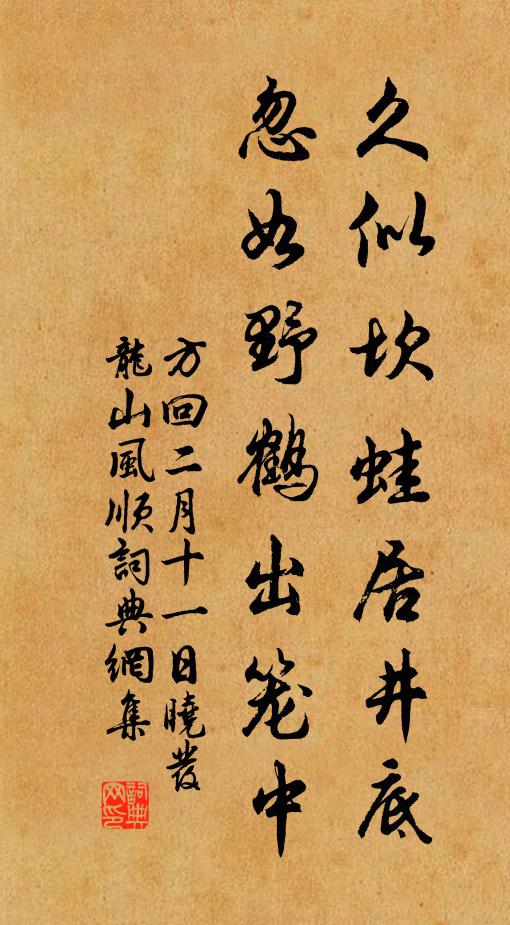 久似坎蛙居井底
忽如野鶴出笼中
方回二月十一日曉發
龍山風順詞典網集
詞典网印